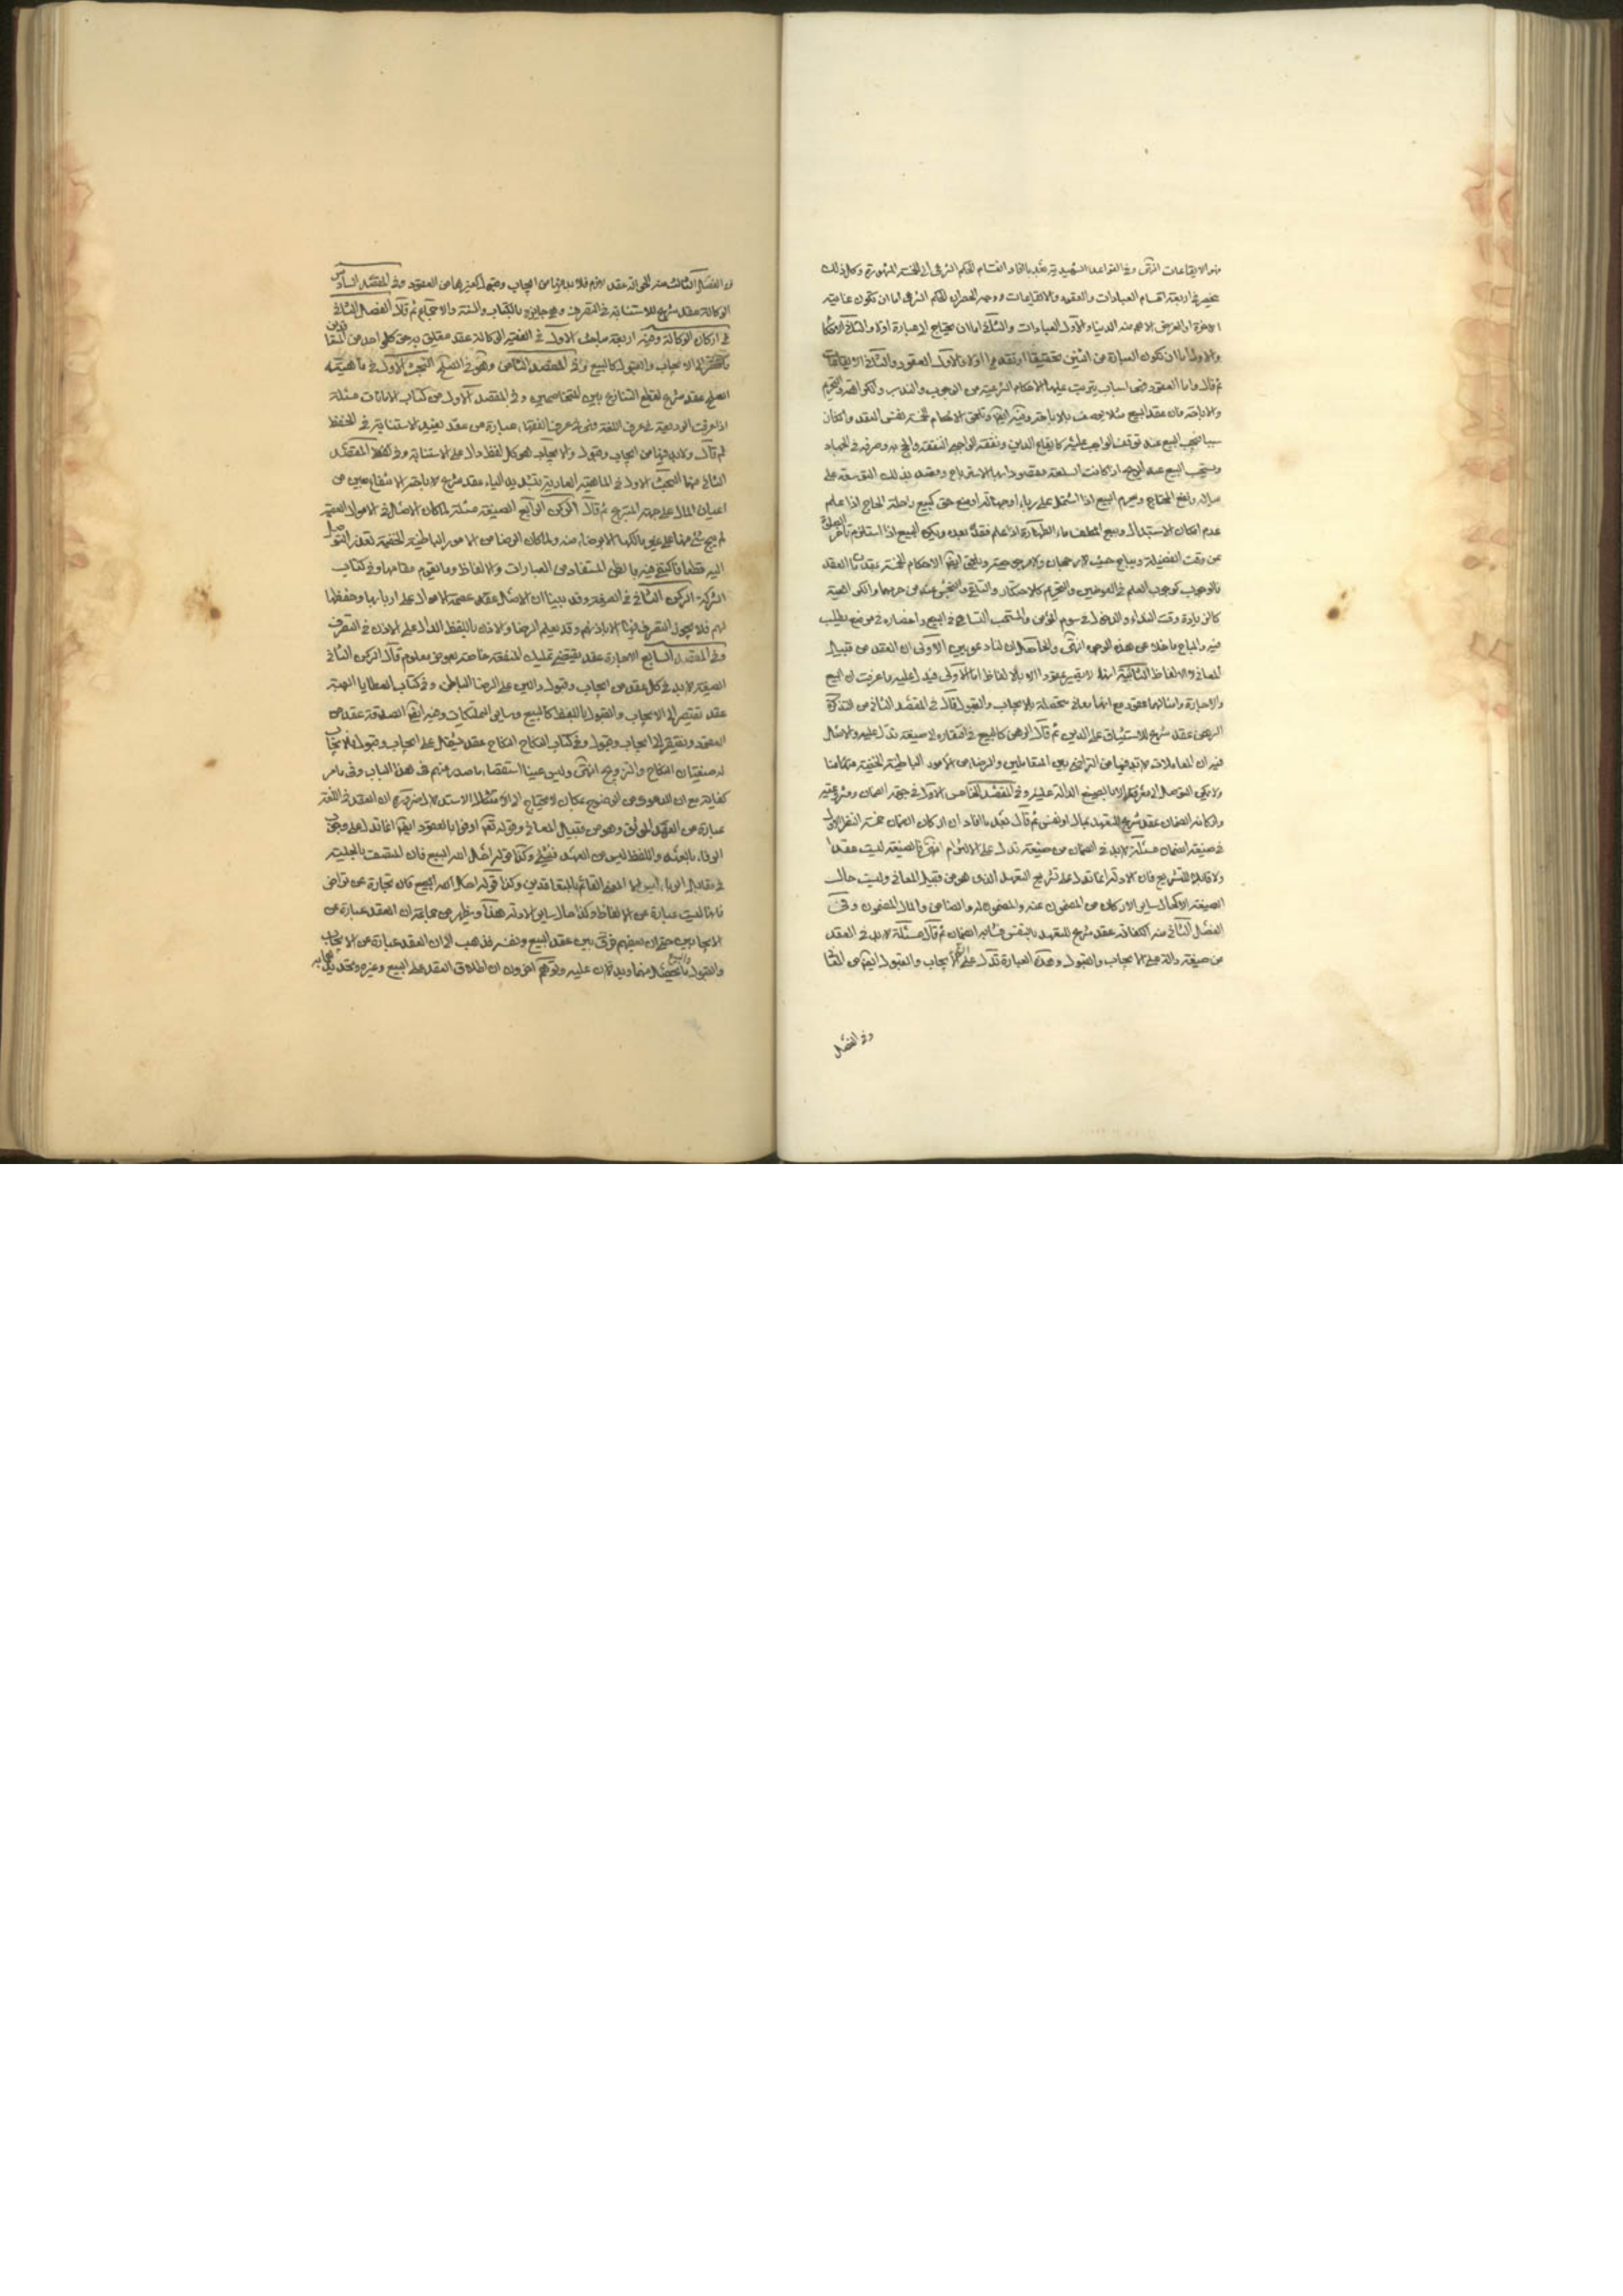 منه الايقاعات انتهى وفى القواعد الشهيدية بعد ما افاد انقسام الحكم الشرعى الى الخمسة المشهورة وكل ذلك
ينحصر فى اربعة اقسام العبادات والعقود والايقاعات ووجه الحصر ان الحكم الشرعى اما ان تكون غايته
الاخرة او الغرض الاهم منه الدنيا والاول العبادات والثانى اما ان يحتاج الى عبارة اولا والثانى الاحكام
والاول اما ان تكون العبارة من اثنين تحقيقا او تقديرا اولا والاول العقود والثانى الايقاعات
ثم قال واما العقود فهى اسباب يترتب عليها الاحكام الشرعية من الوجوب والندب والكراهة والتحريم
والاباحة فان عقد البيع مثلا يوصف بالاباحة وفيه ايضا وتلحق الاحكام الخمسة نفس العقد واذا كان
سببا فيجب البيع عند توقف الواجب عليه كايفاء الدين ونفقة الواجبى النفقة والحج به وصرفه فى الجهاد
ويستحب البيع عند الربح اذا كانت السلعة مقصودا بها الاسترباح وقصد بذلك التوسعة على
عياله ونفع المحتاج ويحرم البيع اذا اشتمل على رباء او جهالة او منع حق كبيع راحلة الحاج اذا علم
عدم امكان الاستبدال وبيع المكلف ماء الطهارة اذا علم فقد بعده ويكره البيع اذا استلزم تاخير الصلوة
عن وقت الفضيلة ويباح حيث لا رجحان ولا مرجوحية ويلحق ايضا الاحكام الخمسة عقد
فالوجوب كوجوب العلم فى العوضين والتحريم كالاحتكار والتلقى والنجش عند من حرمهما والكراهية
كالزيادة وقت النداء والدخول فى سوم المؤمن والمستحب التسامح فى البيع واحضاره فى موضع يطلب
فيه والمباح ما خلا عن هذه الوجوه انتهى والحاصل ان لنا دعويين الاولى ان العقد من قبيل
المعانى والالفاظ الثانية انه لا يعتبر عقودا الا بالالفاظ اما الاولى فيدل عليه ما عرفت ان البيع
والاجارة وامثالهما عقود مع انها معانى متحصلة بالايجاب والقبول قال فى المقصد الثانى من التذكرة
الرهن عقد شرع للاستيثاق على الدين ثم قال الرهن كالبيع فى افتقاره الى صيغة تدل عليه والاصل
فيه ان المعاملات لا بد فيها من التراضى بين المتعاملين والرضا من الامور الباطنة الخفية عنا
ولا يمكن التوصل الى معرفته الا بالصيغ الدالة عليه وفى المقصد الخامس الاول فى جهة الضمان ومشروعيته
واركانه الضمان عقد شرع للتعهد بمال او نفس ثم قال بعد ما افاد ان اركان الضمان خمسة النظر الاول
فى صيغة الضمان مسئلة لا بد فى الضمان من صيغة تدل على الالتزام انتهى فالصيغة ليست عقدا
ولا قابلة للتشريع فان الادلة انما تدل على تشريع التعهد الذى هو من قبيل المعانى وليست حال
الصيغة الا كحال ساير الاركان من المضمون عنه والمضمون له والضامن والمال المضمون وفى
الفصل الثانى منه الكفالة عقد شرع للتعهد بالنفس فشابه الضمان ثم قال مسئلة لا بد فى العقد
من صيغة دالة على الايجاب والقبول وهذه العبارة تدل على ان الايجاب والقبول ايضا من
وفى الفصل
الفصل الثالث منه الحوالة عقد لازم فلا بد فيها من ايجاب وقبول كغيرها من العقود وفى المقصد السادس
الوكالة عقد شرع للاستنابة فى التصرف وهى جايزة بالكتاب والسنة والاجماع ثم قال الفصل الثانى
فى اركان الوكالة وفيه اربعة مباحث الاول فى الصيغة الوكالة عقد متعلق به حق كل واحد من المتعاقدين
فافتقر الى الايجاب والقبول كالبيع وفى المقصد الثامن وهو فى الصلح البحث الاول فى ماهيته
الصلح عقد شرع لقطع التنازع بين المتخاصمين وفى المقصد الاول من كتاب الامانات مسئلة
اذا عرفت الوديعة فى عرف اللغة فهى فى عرف الفقهاء عبارة عن عقد يفيد الاستنابة فى الحفظ
ثم قال ولا بد فيها من ايجاب وقبول والايجاب هو كل لفظ دال على الاستنابة وفى المقصد
الثانى منها البحث الاول فى الماهية العارية بتشديد الياء عقد شرع لاباحة الانتفاع بعين من
اعيان المال على جهة التبرع ثم قال الركن الرابع الصيغة مسئلة لما كان الاصل فى الاموال العصمة
لم يبح شئ منها على غير مالكها الا برضاء منه ولما كان الرضا من الامور الباطنة الخفية تعذر التوصل
اليه قطعا فاكتفى فيه بالظن المستفاد من العبارات والالفاظ وما يقوم مقامها وفى كتاب
الشركة الركن الثانى فى الصيغة وقد بينا ان الاصل عصمة الاموال على اربابها وحفظها
لهم فلا يجوز التصرف فيها الا باذنهم وقد يعلم الرضا والاذن باللفظ الدال على الاذن فى التصرف
وفى المقصد السابع الاجارة عقد يقتضى تمليك المنفعة خاصة بعوض معلوم قال الركن الثانى
الصيغة لا بد فى كل عقد من ايجاب وقبول دالين على الرضا الباطن وفى كتاب العطايا الهبة
عقد تفتقر الى الايجاب والقبول باللفظ كالبيع وساير التمليكات وفيه ايضا الصدقة عقد من
العقود ويفتقر الى ايجاب وقبول وفى كتاب النكاح النكاح عقد يشتمل على ايجاب وقبول فالايجاب
له صيغتان النكاح والتزويج انتهى وليس علينا استقصاء ما صدر عنهم فى هذا الباب وفى ما مر
كفاية مع ان الدعوى من الوضوح بمكان لا يحتاج الى ان العقد فى اللغة
عبارة عن العهد الموثق وهو من قبيل المعانى وقوله تعم اوفوا بالعقود ايضا انما تدل على وجوب
الوفاء بالعهد واللفظ ليس من العهد فى شئ وكذا قوله احل الله البيع فان المتصف بالحلية
فى مقابل الربا ليس الا المعنى القائم بالمتعاقدين وكذا قوله احل الله البيع فان تجارة عن تراض
فانها ليست عبارة عن الالفاظ وكذا حال ساير الادلة هذا ويظهر من جماعة ان العقد عبارة عن
الايجابين حتى ان بعضهم فرق بين عقد البيع ونفسه فذهب الى ان العقد عبارة عن الايجاب
والقبول والبيع ما يحصل منهما ويدلان عليه وتوهم اخرون ان اطلاق العقد على البيع وغيره